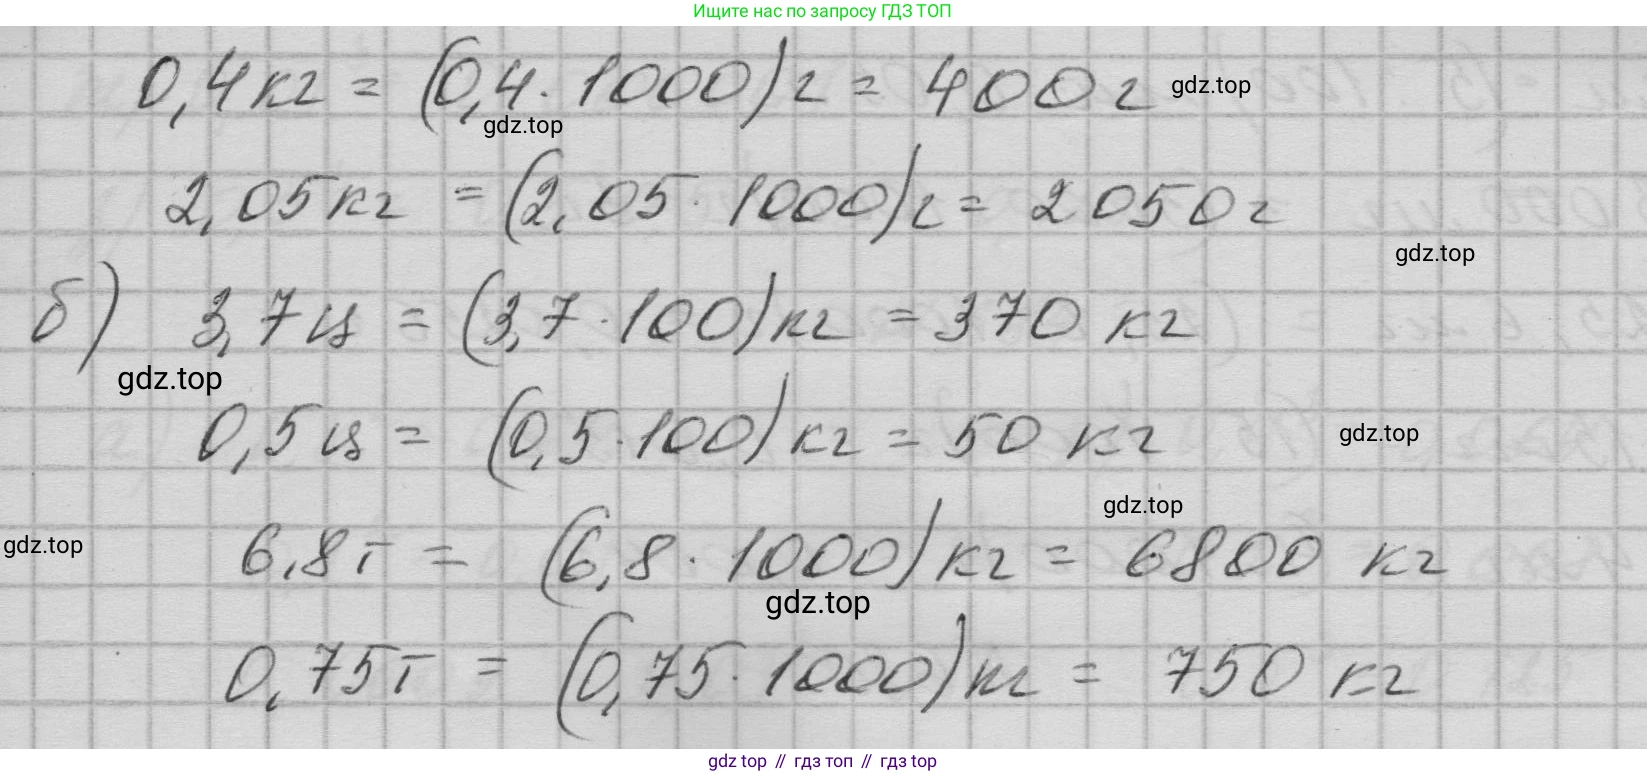 Ищите нас по запросу ГДЗ ТОП
0,4 кг = (0,4 · 1000) г = 400 г
gdz.top
gdz.top
2,05 кг = (2,05 · 1000) г = 2050 г
gdz.top
б) 3,7 ц = (3,7 · 100) кг = 370 кг
gdz.top
0,5 ц = (0,5 · 100) кг = 50 кг
gdz.top
gdz.top
gdz.top
6,8 т = (6,8 · 1000) кг = 6800 кг
gdz.top
0,75 т = (0,75 · 1000) кг = 750 кг
gdz top // гдз топ // гдз top